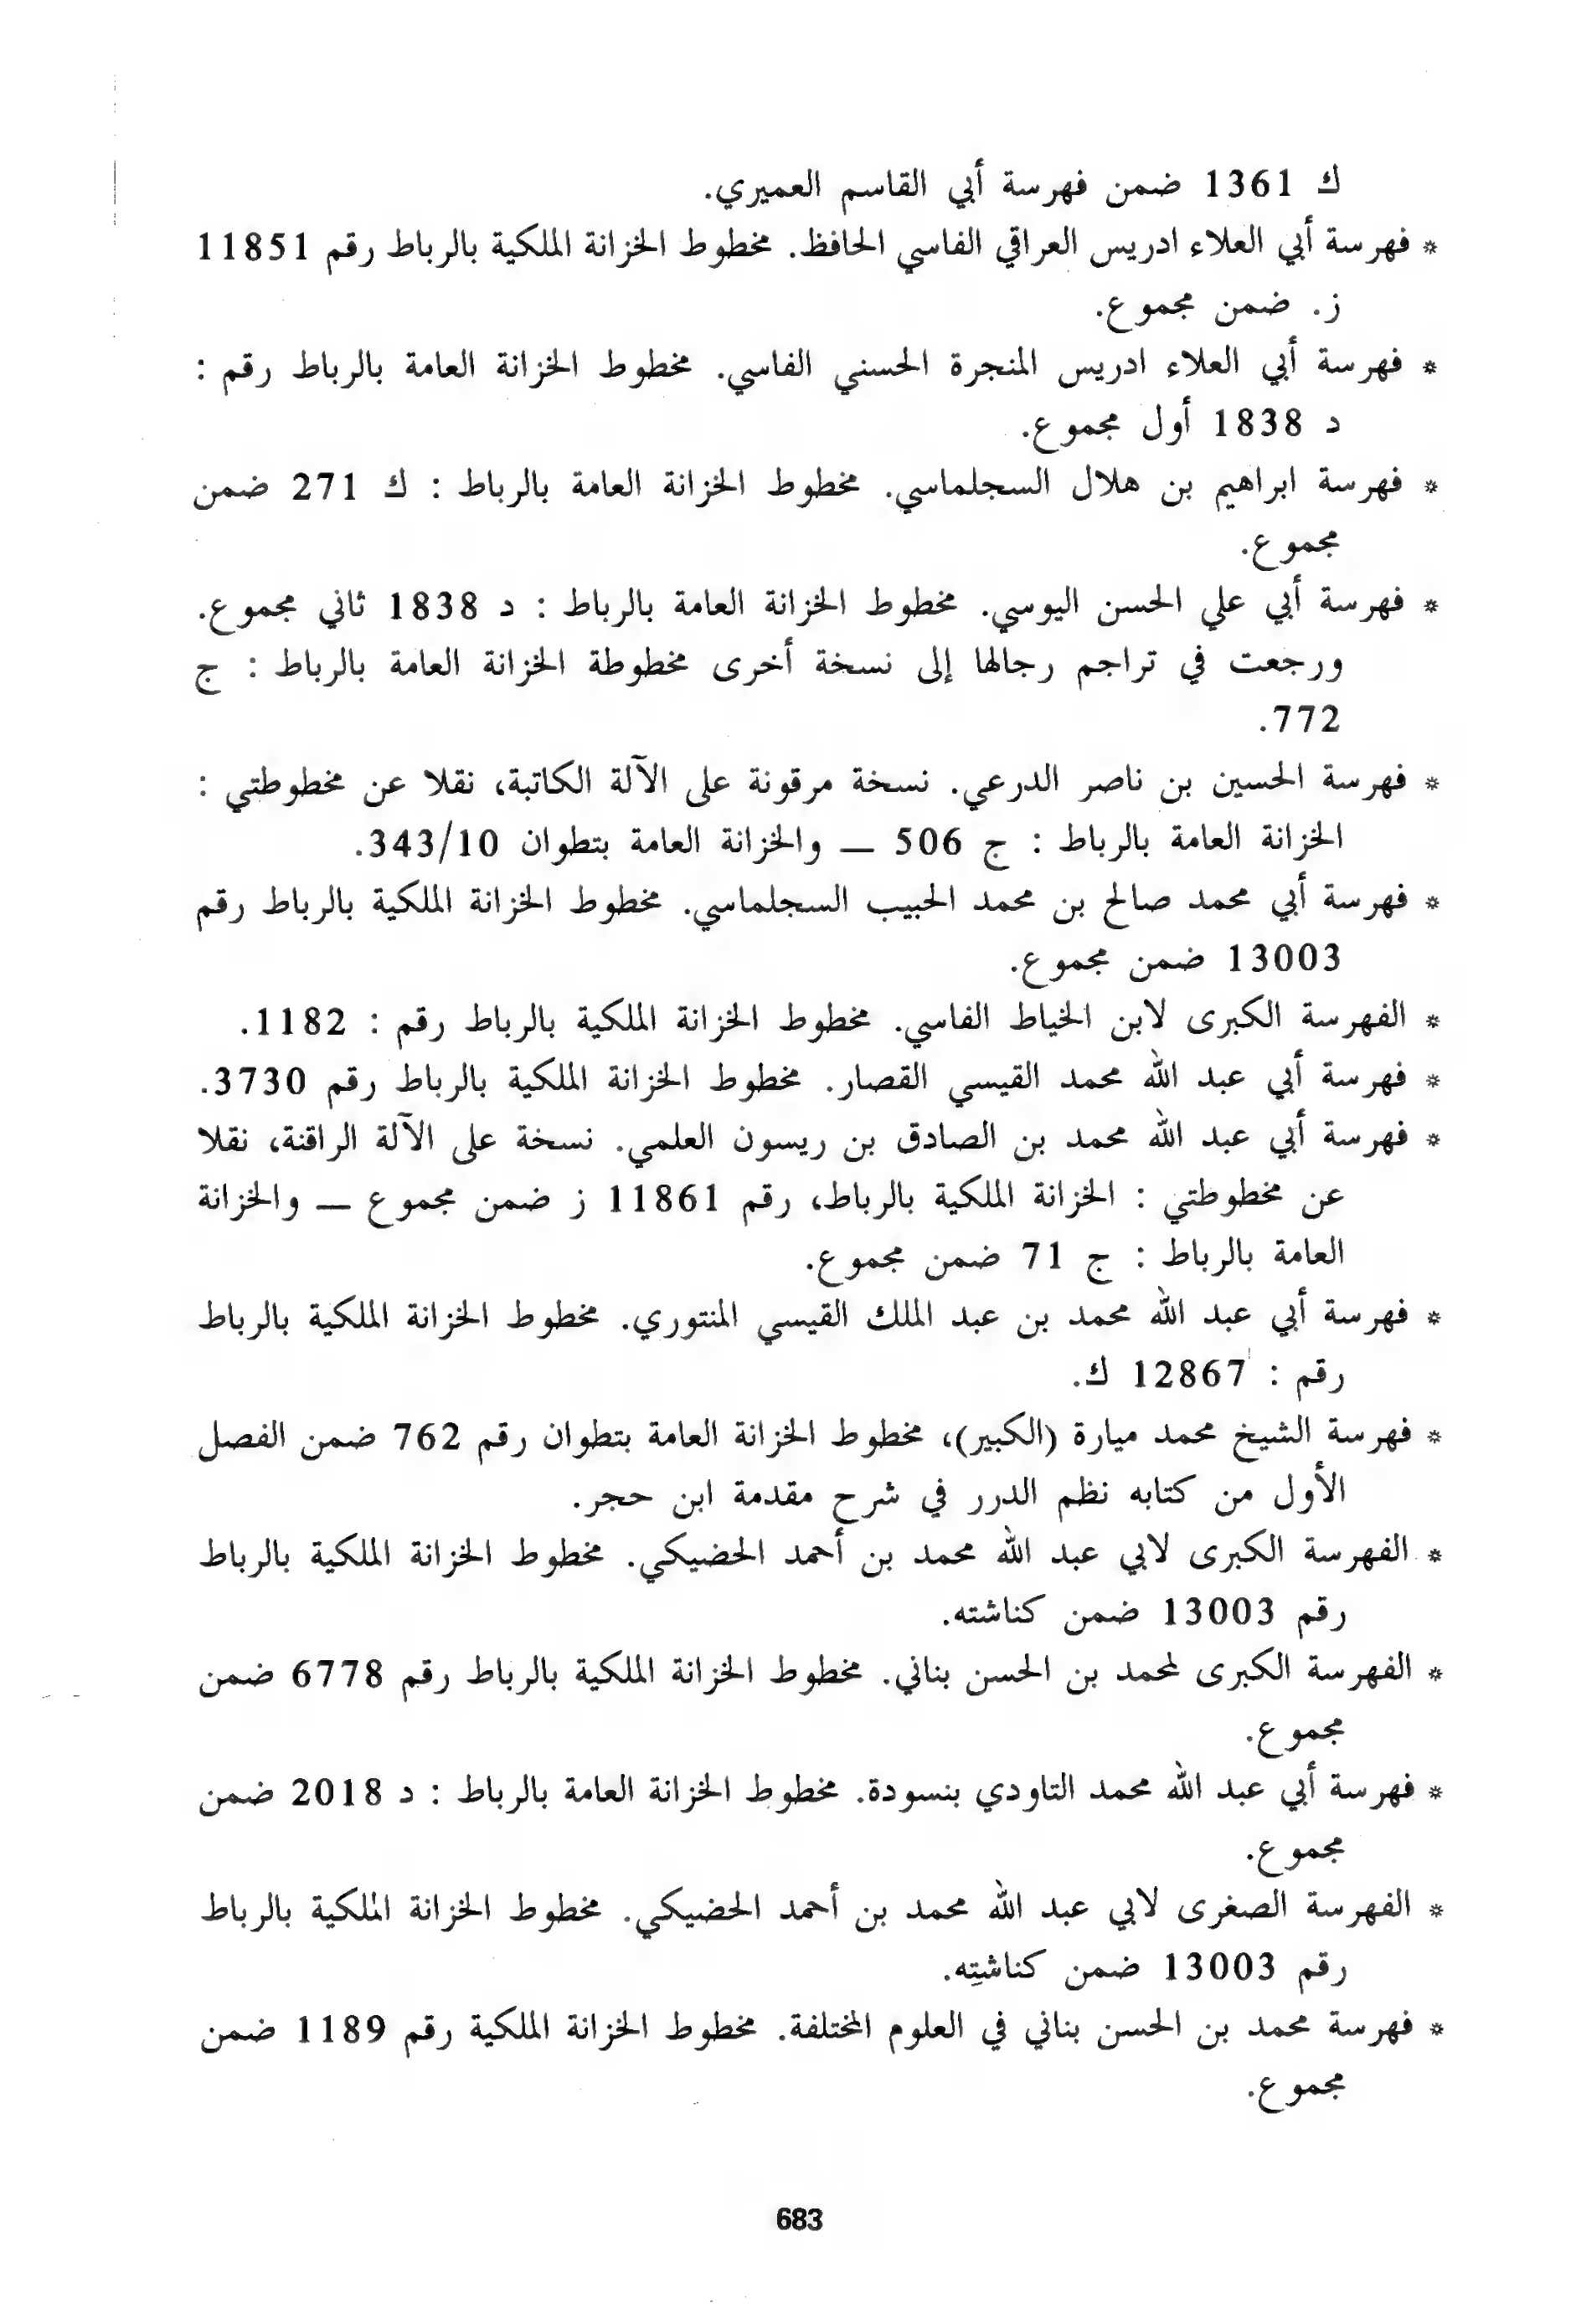 ك 1361 ضمن فهرسة أبي القاسم العميري.
* فهرسة أبي العلاء ادريس العراقي الفاسي الحافظ. مخطوط الخزانة الملكية بالرباط رقم 11851
ز. ضمن مجموع.
* فهرسة أبي العلاء ادريس المنجرة الحسني الفاسي. مخطوط الخزانة العامة بالرباط رقم :
د 1838 أول مجموع.
* فهرسة ابراهيم بن هلال السجلماسي. مخطوط الخزانة العامة بالرباط : ك 271 ضمن
مجموع.
* فهرسة أبي علي الحسن اليوسي. مخطوط الخزانة العامة بالرباط : د 1838 ثاني مجموع.
ورجعت في تراجم رجالها إلى نسخة أخرى مخطوطة الخزانة العامة بالرباط : ج
772.
* فهرسة الحسين بن ناصر الدرعي. نسخة مرقونة على الآلة الكاتبة، نقلا عن مخطوطتي :
الخزانة العامة بالرباط : ج 506 — والخزانة العامة بتطوان 343/10.
* فهرسة أبي محمد صالح بن محمد الحبيب السجلماسي. مخطوط الخزانة الملكية بالرباط رقم
13003 ضمن مجموع.
* الفهرسة الكبرى لابن الخياط الفاسي. مخطوط الخزانة الملكية بالرباط رقم : 1182.
* فهرسة أبي عبد الله محمد القيسي القصار. مخطوط الخزانة الملكية بالرباط رقم 3730.
* فهرسة أبي عبد الله محمد بن الصادق بن ريسون العلمي. نسخة على الآلة الراقنة، نقلا
عن مخطوطتي : الخزانة الملكية بالرباط، رقم 11861 ز ضمن مجموع — والخزانة
العامة بالرباط : ج 71 ضمن مجموع.
* فهرسة أبي عبد الله محمد بن عبد الملك القيسي المنتوري. مخطوط الخزانة الملكية بالرباط
رقم : 12867 ك.
* فهرسة الشيخ محمد ميارة (الكبير)، مخطوط الخزانة العامة بتطوان رقم 762 ضمن الفصل
الأول من كتابه نظم الدرر في شرح مقدمة ابن حجر.
* الفهرسة الكبرى لابي عبد الله محمد بن أحمد الحضيكي. مخطوط الخزانة الملكية بالرباط
رقم 13003 ضمن كناشته.
* الفهرسة الكبرى لمحمد بن الحسن بناني. مخطوط الخزانة الملكية بالرباط رقم 6778 ضمن
مجموع.
* فهرسة أبي عبد الله محمد التاودي بنسودة. مخطوط الخزانة العامة بالرباط : د 2018 ضمن
مجموع.
* الفهرسة الصغرى لابي عبد الله محمد بن أحمد الحضيكي. مخطوط الخزانة الملكية بالرباط
رقم 13003 ضمن كناشتِه.
* فهرسة محمد بن الحسن بناني في العلوم المختلفة. مخطوط الخزانة الملكية رقم 1189 ضمن
مجموع.
683